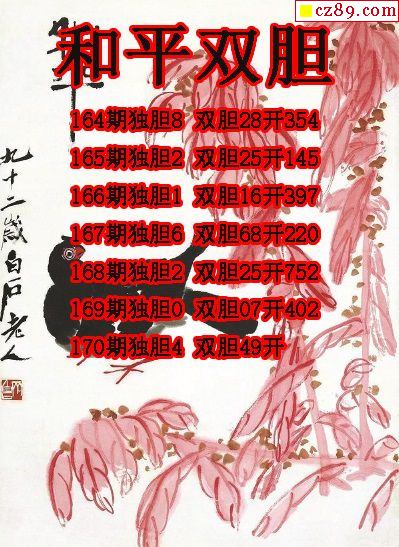 cz89.com
和平双胆
164期独胆8 双胆28开354
165期独胆2 双胆25开145
166期独胆1 双胆16开397
167期独胆6 双胆68开220
168期独胆2 双胆25开752
169期独胆0 双胆07开402
170期独胆4 双胆49开
九十二岁白石老人